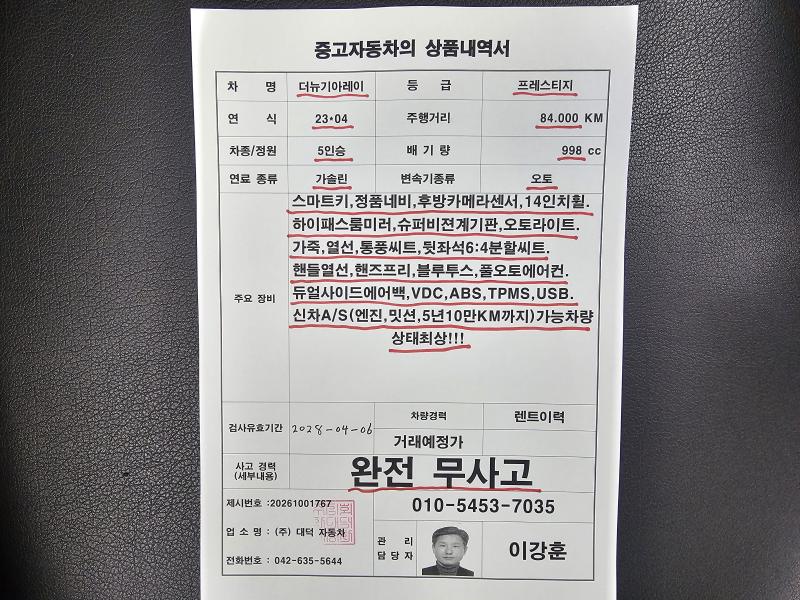 중고자동차의 상품내역서
차 명 더뉴기아레이 등 급 프레스티지
연 식 23*04 주행거리 84.000 KM
차종/정원 5인승 배 기 량 998 cc
연료 종류 가솔린 변속기종류 오토
스마트키,정품네비,후방카메라센서,14인치휠.
하이패스룸미러,슈퍼비젼계기판,오토라이트.
가죽,열선,통풍씨트,뒷좌석6:4분할씨트.
핸들열선,핸즈프리,블루투스,풀오토에어컨.
주요 장비 듀얼사이드에어백,VDC,ABS,TPMS,USB.
신차A/S(엔진,밋션,5년10만KM까지)가능차량
상태최상!!!
검사유효기간 2028-04-06 차량경력 렌트이력
거래예정가
사고 경력 (세부내용) 완전 무사고
제시번호 :20261001767 010-5453-7035
업 소 명 : (주) 대덕 자동차
관 리 담 당 자 이강훈
전화번호 : 042-635-5644